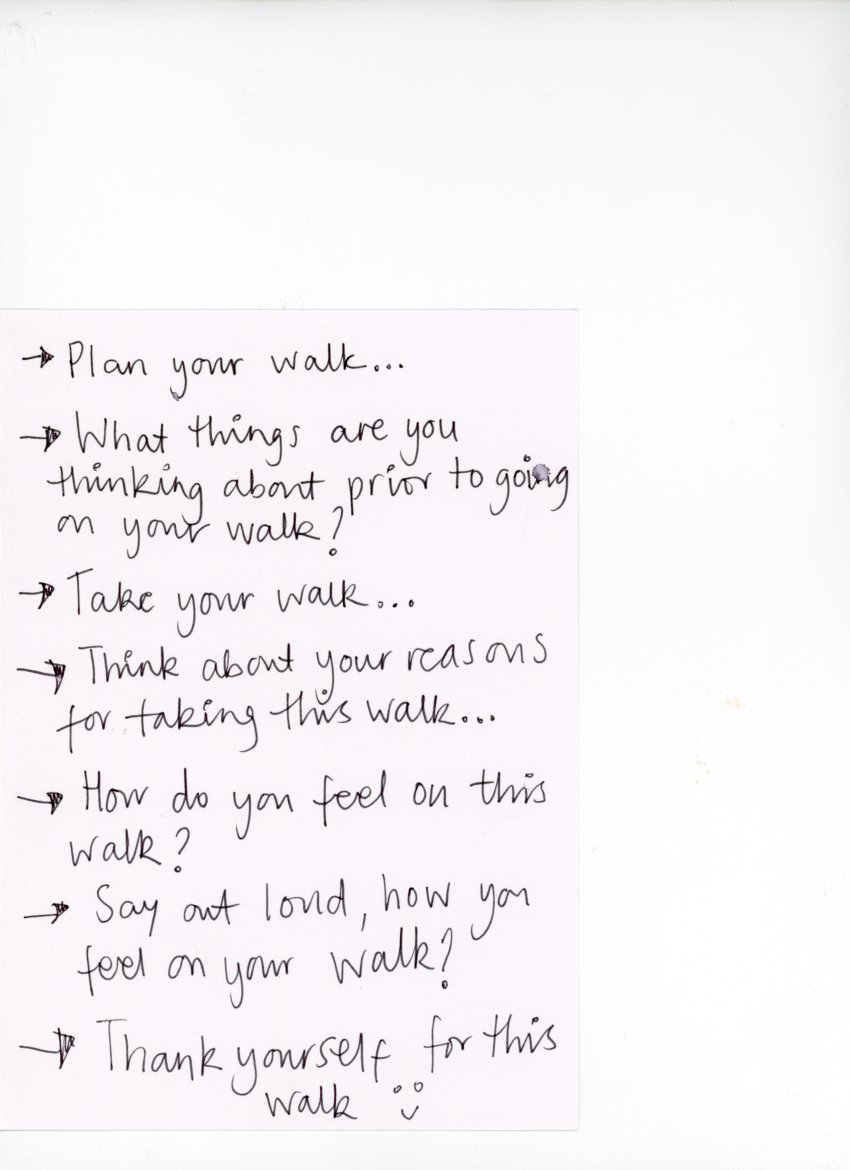 → Plan your walk...
→ What things are you
thinking about prior to going
on your walk?
→ Take your walk...
→ Think about your reasons
for taking this walk...
→ How do you feel on this
walk?
→ Say out loud, how you
feel on your walk?
→ Thank yourself for this
walk :)